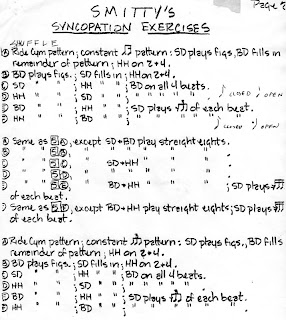 Page
SMITTY'S
SYNCOPATION EXERCISES
SHUFFLE
Ride Cym pattern; constant pattern: SD plays figs, BD fills in
remainder of pattern; HH on 2+4.
BD plays figs; SD fills in; HH on 2+4.
SD " " ; HH " " ; BD on all 4 beats.
HH " " ; SD " " ; " " " " " . CLOSED OPEN
BD " " ; HH " " ; SD plays of each beat.
HH " " ; BD " " ; " " " " " .
CLOSED OPEN
Same as 5, except SD+BD play streight eights;
" " " " SD+HH " " "
" " " " " " " "
" " " " BD+HH " " " ; SD plays
of each beat.
Same as 5, except BD+HH play streight eights; SD plays
of each beat.
Ride Cym pattern; constant pattern: SD plays figs., BD fills in
remainder of pattern; HH on 2+4.
BD plays figs; SD fills in; HH on 2+4.
SD " " ; HH " " ; BD on all 4 beats.
HH " " ; SD " " ; " " " " " .
BD " " ; HH " " ; SD plays of each beat.
HH " " ; BD " " ; " " " " " .